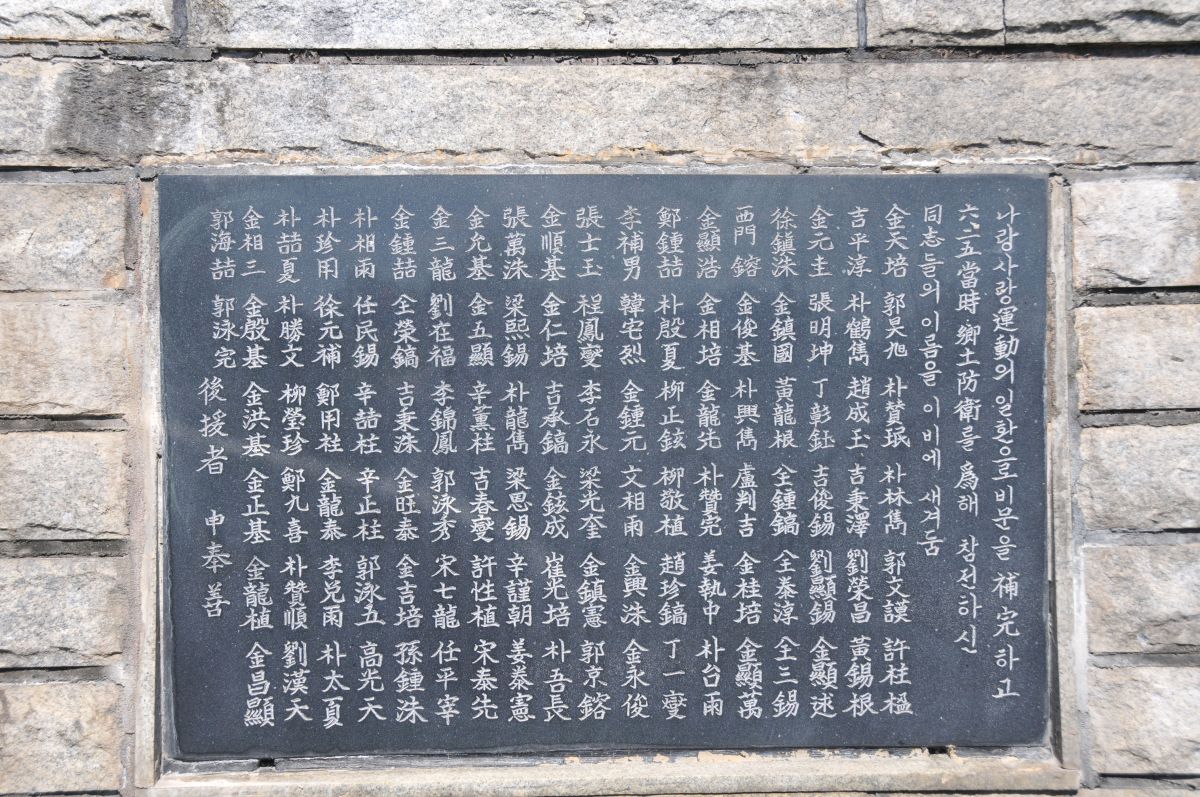 나라사랑運動의일환으로비문을 補完하고
六二五當時 鄕土防衛를 爲해 참전하신
同志들의이름을 이비에 새겨둠
金天培 郭昊旭 朴贊珉 朴林雋 郭文謨 許柱楹
吉平淳 朴鶴雋 趙成玉 吉秉澤 劉榮昌 黃錫根
金元圭 張明坤 丁彰鈺 吉俊錫 劉顯錫 金顯逑
徐鎭洙 金鎭國 黃龍根 全鍾鎬 全泰淳 全三錫
西門鎔 金俊基 朴興雋 盧判吉 金桂培 金顯萬
金顯浩 金相培 金龍先 朴贊完 姜執中 朴台雨
鄭鍾喆 朴殷夏 柳正鉉 柳敬植 趙珍鎬 丁一燮
李補男 韓宅烈 金鍾元 文相雨 金興洙 金永俊
張士玉 程鳳燮 李石永 梁光奎 金鎭憲 郭京鎔
金順基 金仁培 吉承鎬 金鉉成 崔光培 朴吾長
張萬洙 梁熙錫 朴龍雋 梁思錫 辛謹朝 姜泰憲
金允基 金五顯 辛薰柱 吉春燮 許性植 宋泰先
金三龍 劉在福 李錦鳳 郭泳秀 宋七龍 任平宰
金鍾喆 全榮鎬 吉秉洙 金旺泰 金吉培 孫鍾洙
朴相雨 任民錫 辛喆柱 辛正柱 郭泳五 高光天
朴珍用 徐元補 鄭用柱 金龍泰 李兌雨 朴太夏
朴喆夏 朴勝文 柳瑩珍 鄭九喜 朴贊順 劉漢天
金相三 金殷基 金洪基 金正基 金龍植 金昌顯
郭海喆 郭泳完 後援者 申奉善